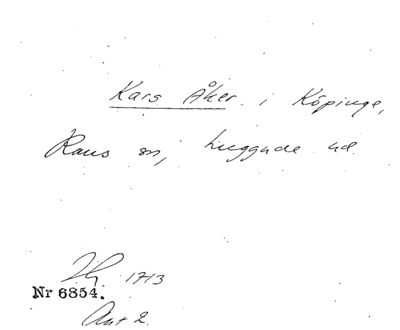 Kars Åker i Köpinge,
Raus sn, Luggude hd.
1713
Nr 6854.
Ant 2.